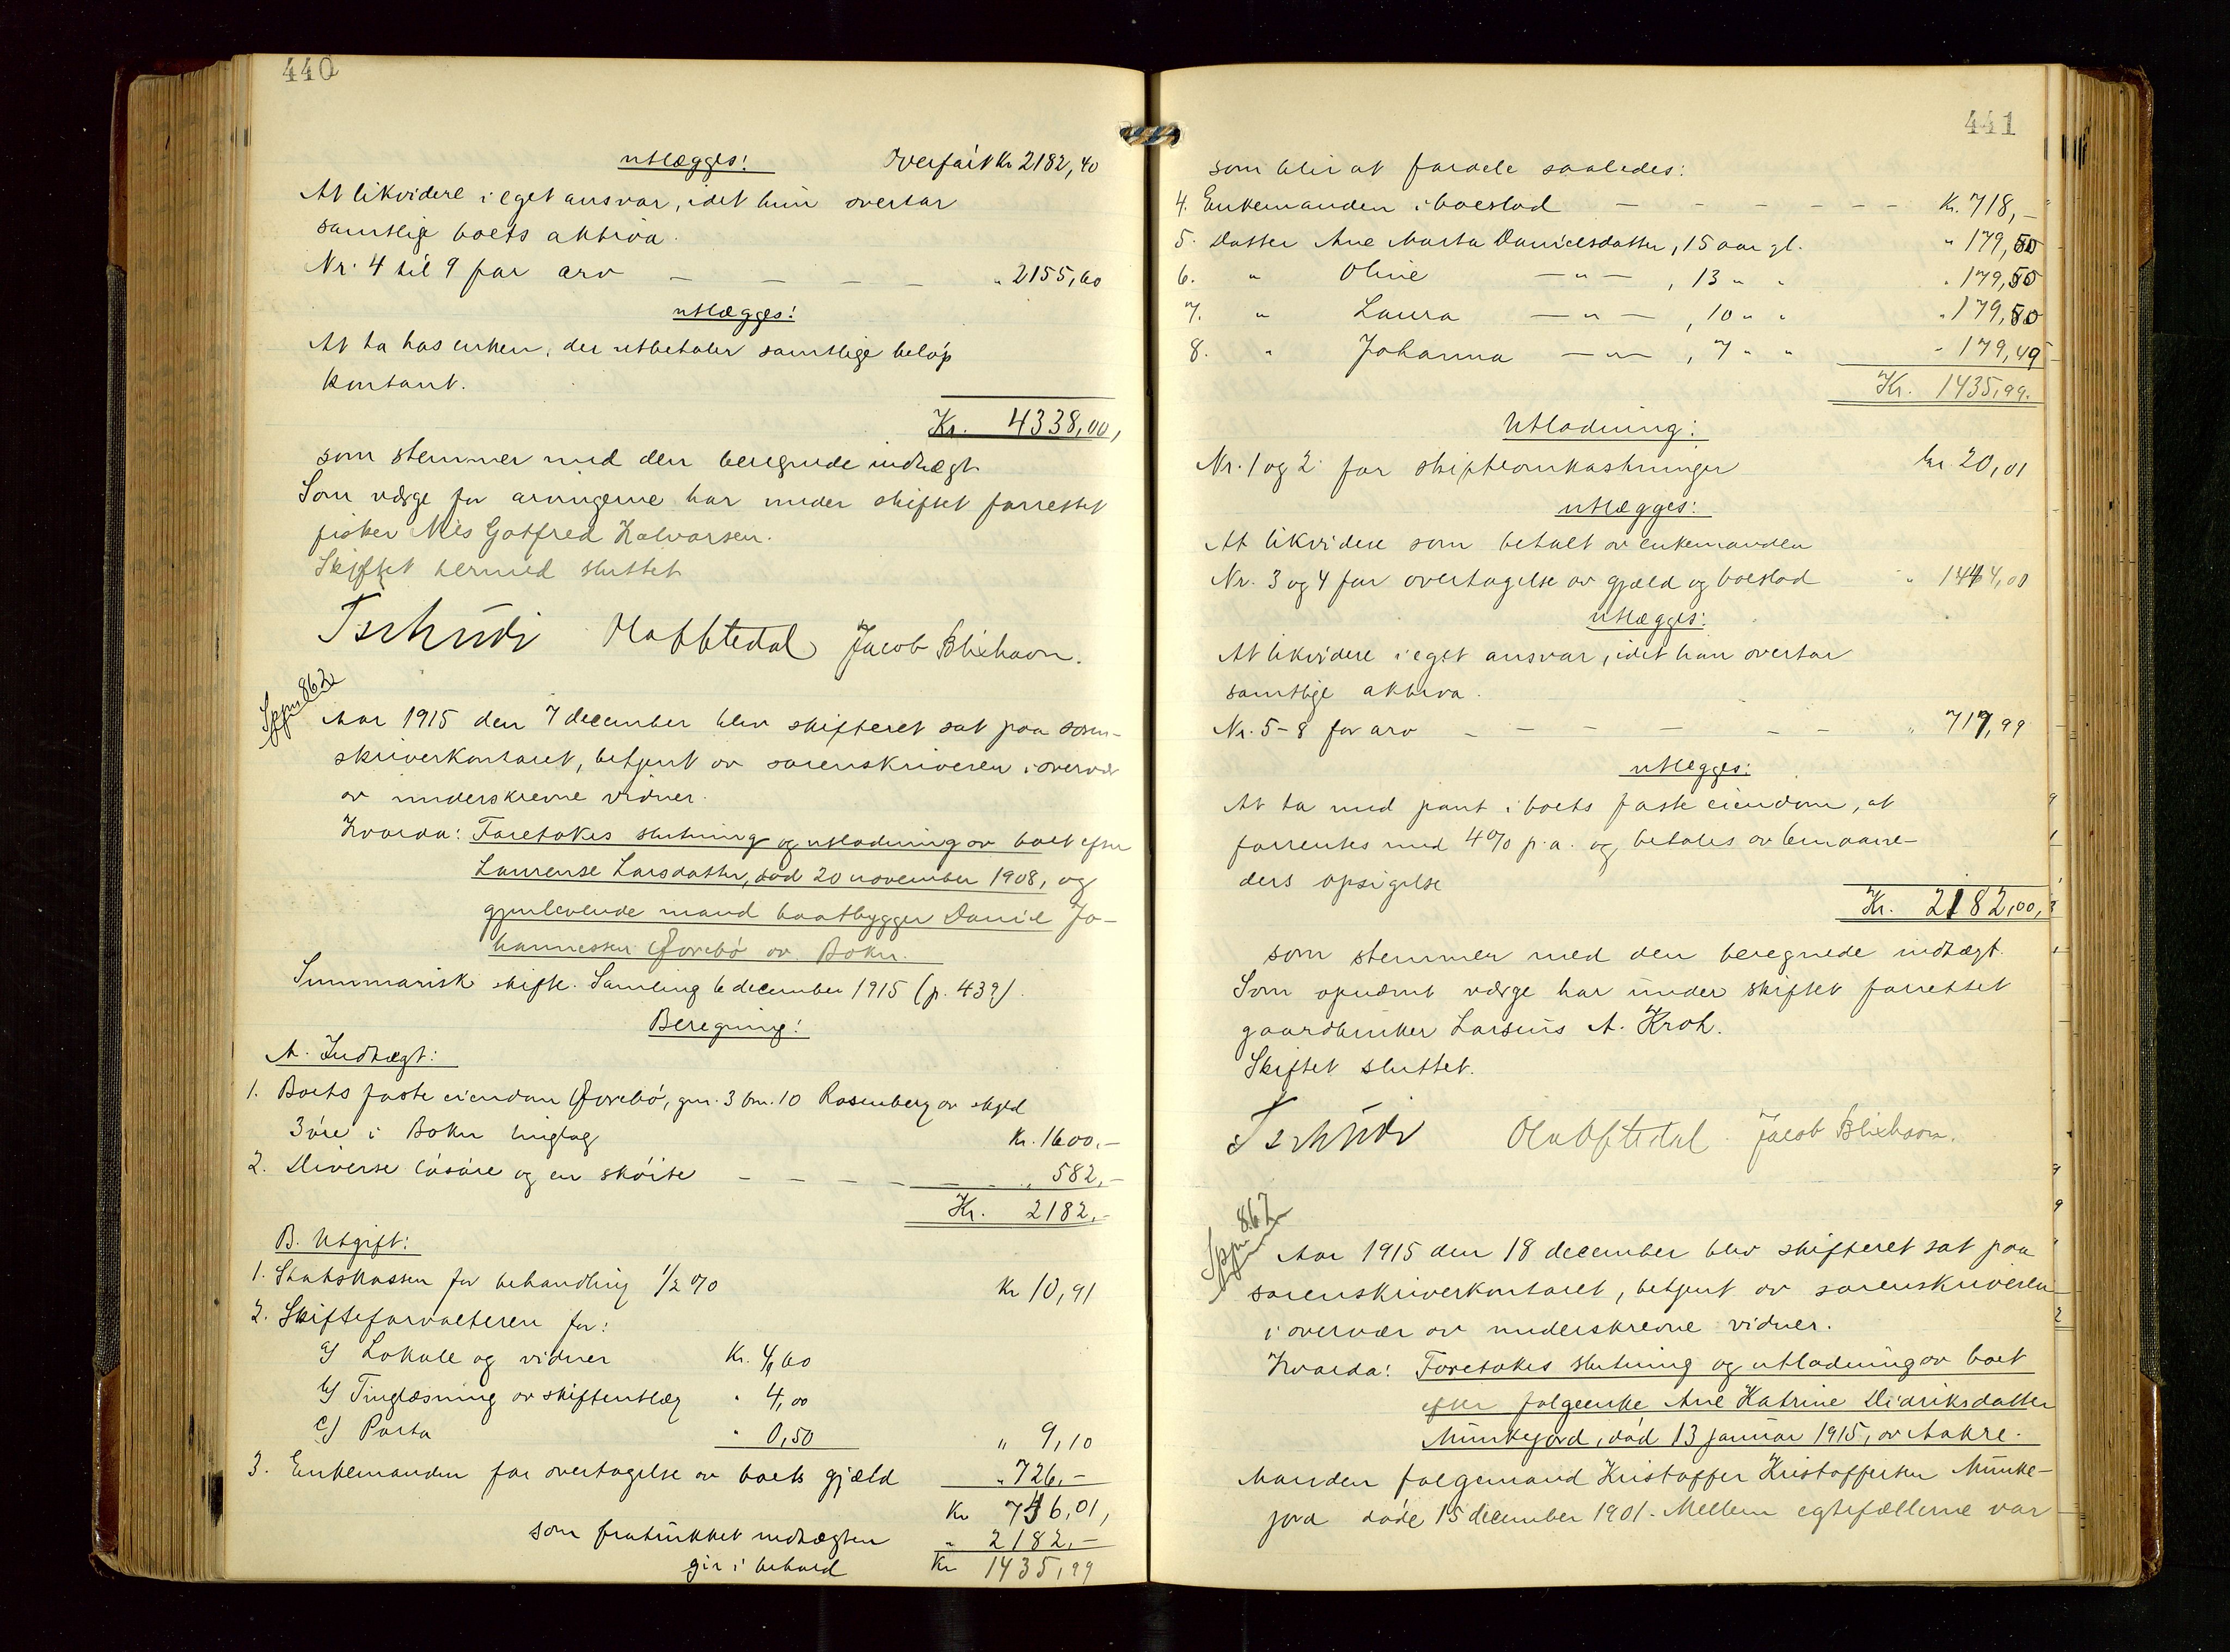 440
utlægges: Overført Kr 2182,40
At likvidere i eget ansvar, idet hun overtar
samtlige boets aktiva.
Nr. 4 til 9 for arv — — — — " 2155,60
utlægges:
At ta hos enken, der utbetaler samtlige beløp
kontant.
Kr. 4338,00,
som stemmer med den beregnede indtægt.
Som værge for arvingerne har under skiftet forrettet
fisker Nils Gotfred Halvorsen.
Skiftet hermed sluttet.
Tschudi Jacob Blixhavn.
862
Aar 1915 den 7 december blev skifteret sat paa soren-
skriverkontoret, betjent av sorenskriveren i overvær
av underskrevne vidner.
Hvorda: Foretokes slutning og utlodning av boet efter
Laurense Larsdatter, død 20 november 1908, og
gjenlevende mand baatbygger Daniel Jo-
hannessen Øvrebø av Bokn.
Summarisk skifte. Samling 6 december 1915 (p. 439).
Beregning:
A. Indtægt:
1. Boets faste eiendom Øvrebø, gnr. 3 bnr. 10 Rosenberg av skyld
3 øre i Bokn tinglag Kr. 1600.-
2. Diverse løsøre og en skøite — — — — — " 582.-
Kr. 2182.-
B. Utgift:
1. Statskassen for behandling 1/2 % Kr 10,91
2. Skifteforvalteren for:
a) Lokale og vidner Kr. 4,60
b) Tinglæsning av skifteutlæg " 4,00
c) Porto " 0,50 " 9,10
3. Enkemanden for overtagelse av boets gjæld " 726.-
Kr 746,01,
som fratrukket indtægten " 2182.-
gir i behold Kr 1435,99
441
som blir at fordele saaledes:
4. Enkemanden i boeslod — — — — — — — Kr. 718,-
5. Datter Ane Marta Danielsdatter, 15 aar gl. " 179,50
6. " Oline — " — , 13 " " " 179,50
7. " Laura — " — , 10 " " " 179,50
8. " Johanna — " — , 7 " " " 179,49
Kr. 1435,99.
Utlodning:
Nr. 1 og 2 for skifteomkostninger kr. 20,01
utlægges:
At likvidere som betalt av enkemanden
Nr. 3 og 4 for overtagelse av gjæld og boeslod " 1444,00
utlægges:
At likvidere i eget ansvar, idet han overtar
samtlige aktiva.
Nr. 5-8 for arv — — — — — — " 717,99
utlægges:
At ta med pant i boets faste eiendom, at
forrentes med 4% p.a. og betales av 6 maane-
ders opsigelse
Kr. 2182,00,
som stemmer med den beregnede indtægt.
Som opnævnt værge har under skiftet forrettet
gaardbruker Larsius A. Kroh.
Skiftet sluttet.
Tschudi Jacob Blixhavn.
862
Aar 1915 den 18 december blev skifteret sat paa
sorenskriverkontoret, betjent av sorenskriveren
i overvær av underskrevne vidner.
Hvorda: Foretokes slutning og utlodning av boet
efter folgeenke Ane Katrine Didriksdatter
Munkejord, død 13 januar 1915, av Aakre.
Manden folgemand Kristoffer Kristoffersen Munke-
jord døde 15 december 1901. Mellem egtefællerne var